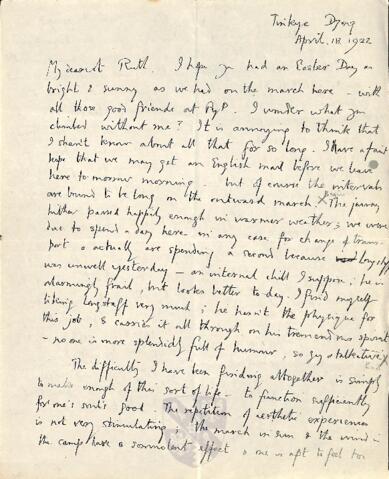 Tinkye Dzong
April. 18 1922
My dearest Ruth. I hope you had an Easter Day as
bright & sunny as we had on the march here - with
all those good friends at PyP. I wonder what you
climbed without me? It is annoying to think that
I shan't know about all that for so long. I have a faint
hope that we may get an English mail before we leave
here to-morrow morning. but of course the intervals
are bound to be long on the outward march. The journey
hither passed happily enough in warmer weather; we were
due to spend a day here in any case for change of trans-
port & actually are spending a second because Longstaff
was unwell yesterday - an internal chill I suppose; he is
alarmingly frail, but looks better to-day. I find myself
liking Longstaff very much; he hasn't the physique for
this job, & carries it all through on his tremendous spirit
- no one is more splendidly full of humour, so gay & talkative
The difficulty I have been finding altogether is simply
to make enough of this sort of life - to function sufficiently
for one's soul's good. The repetition of aesthetic experiences
is not very stimulating; the march in sun & the wind in
the camp have a somnolent effect & one is apt to feel too